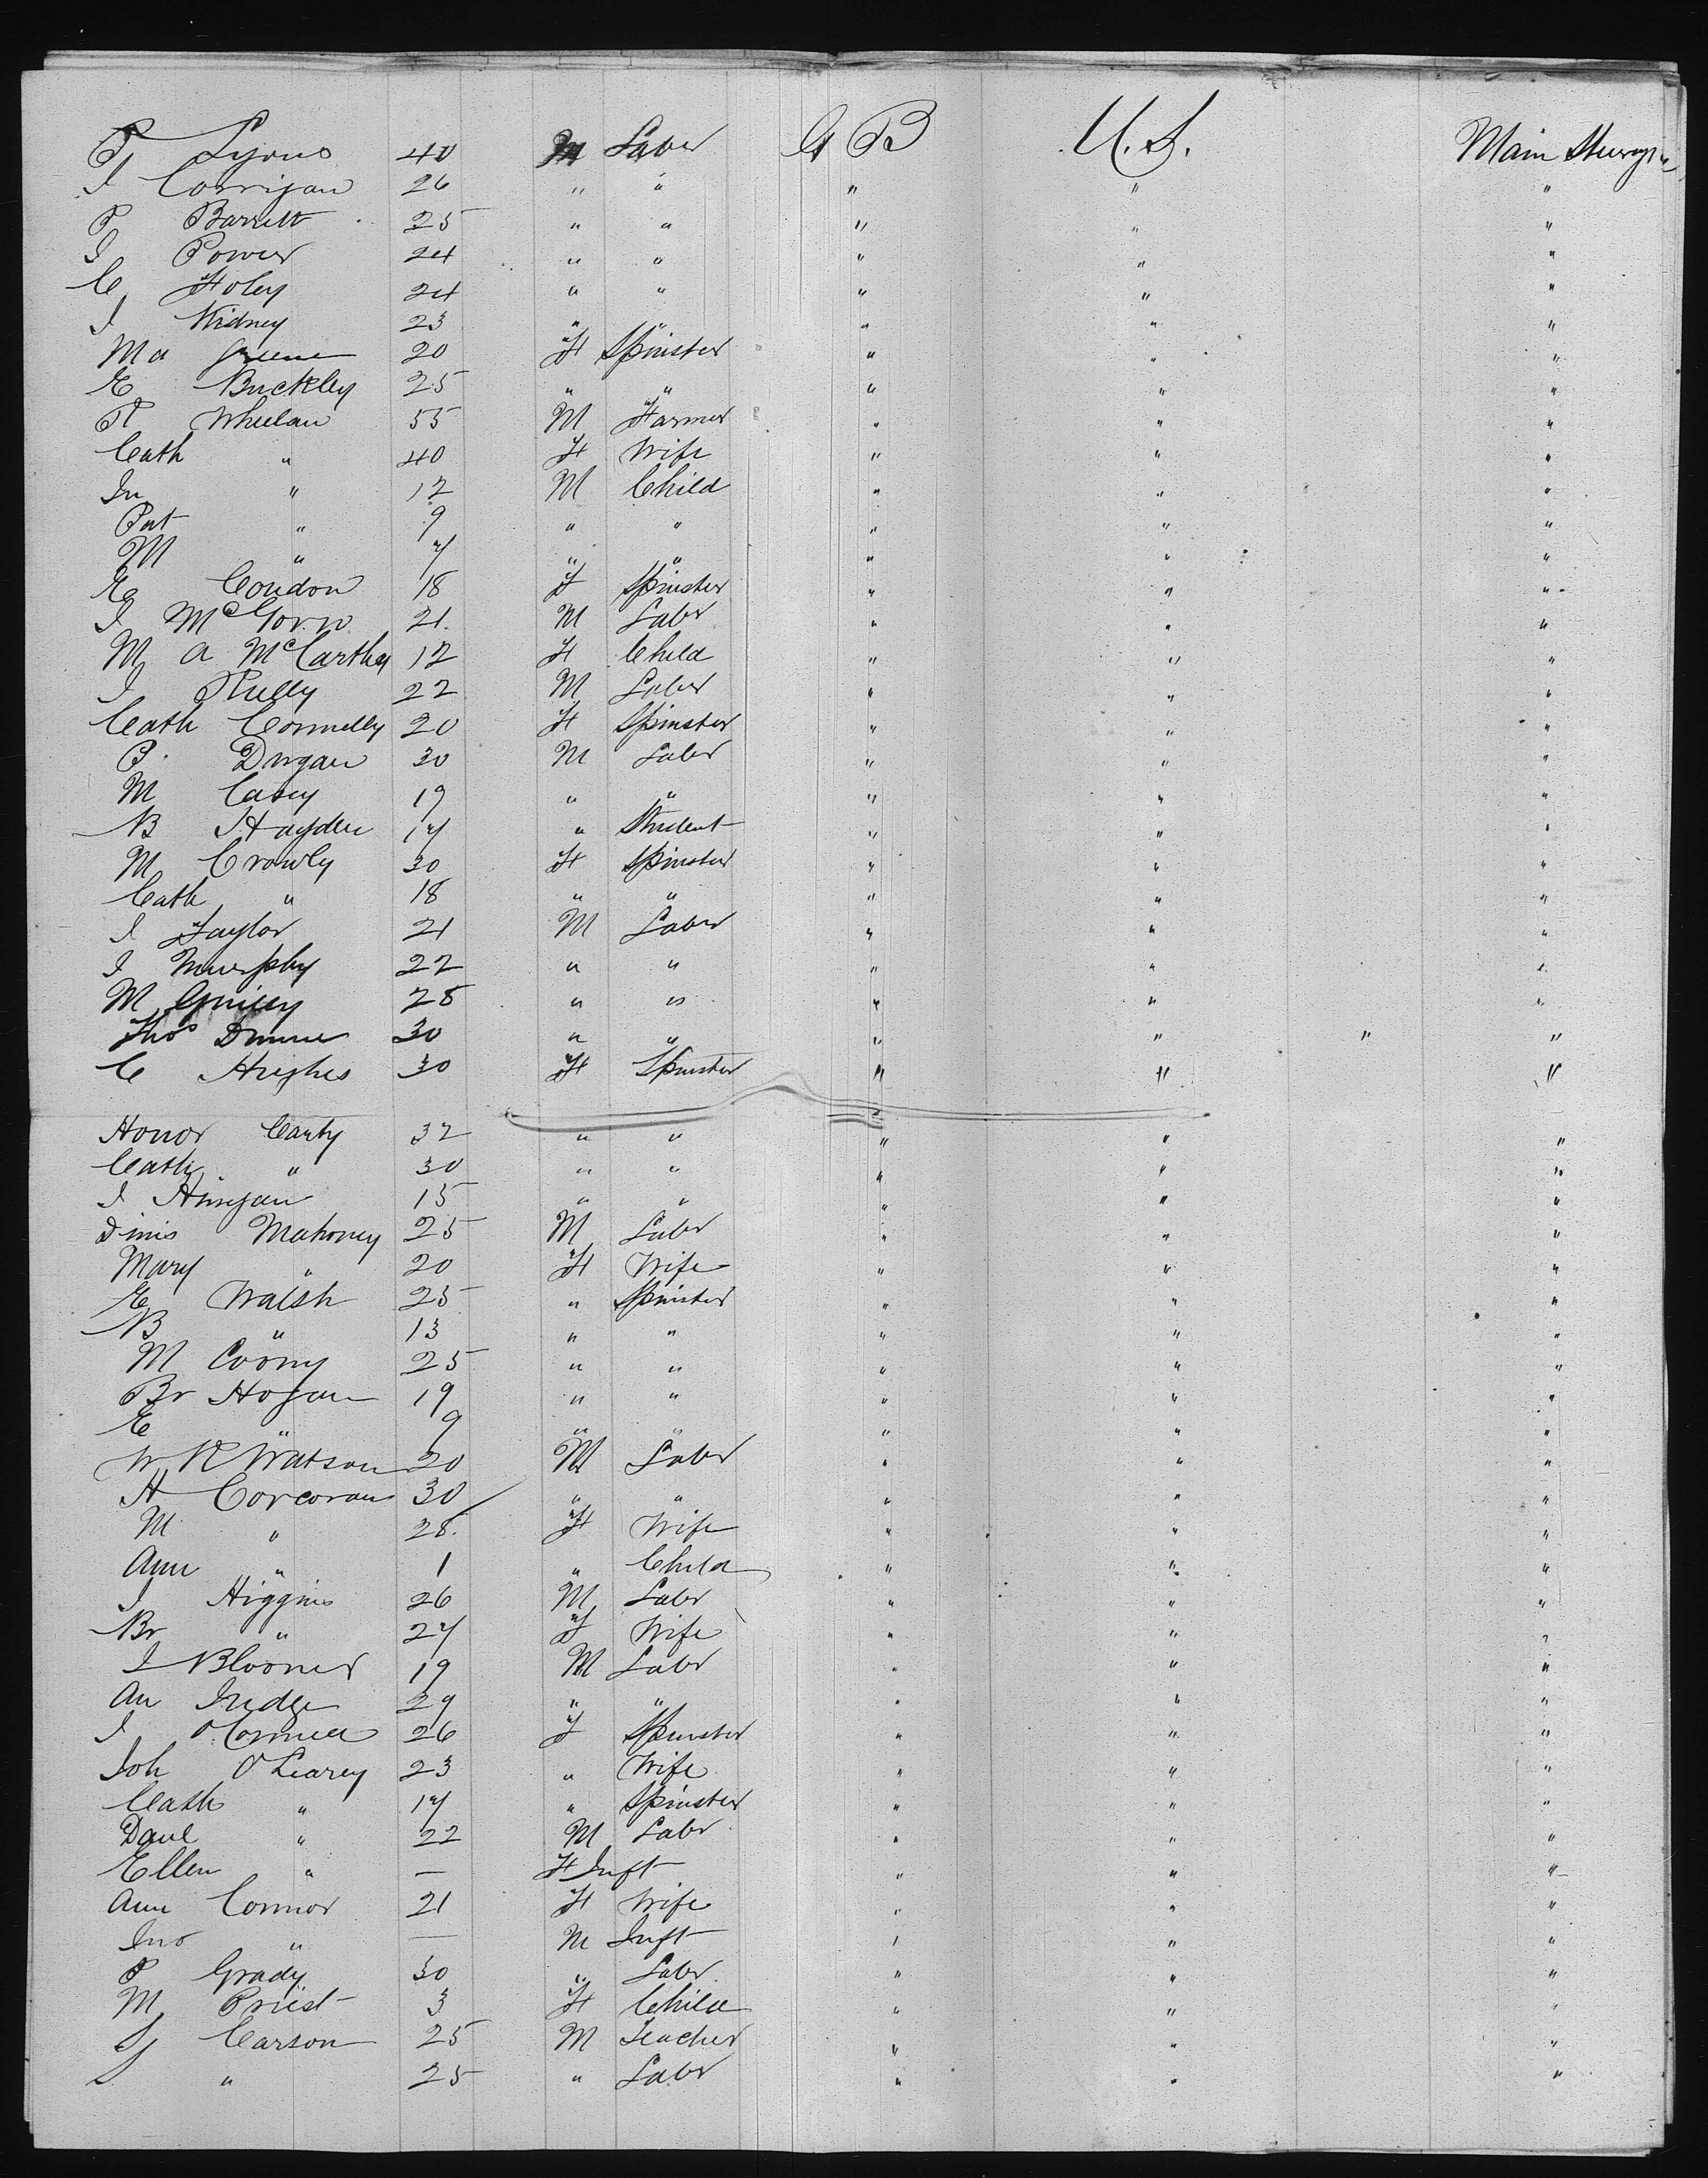 P Lyons 40 M Labr G B U.S. Main Steerage
J Corrigan 26 " " " " "
P Barrett 25 " " " " "
J Power 24 " " " " "
C Foley 24 " " " " "
J Kidney 23 " " " " "
Ma Greene 20 F Spinster " " "
E Buckley 25 " " " " "
P Whelan 55 M Farmer " " "
Cath " 40 F Wife " " "
Jn " 12 M Child " " "
Pat " 9 " " " " "
M " 7 " " " " "
E Condon 18 F Spinster " " "
J McGovrn 21 M Labr " " "
M A McCarthy 12 F Child " " "
J Kelly 22 M Labr " " "
Cath Connelly 20 F Spinster " " "
P Durgan 30 M Labr " " "
M Casey 19 " " " " "
B Hayden 17 " Student " " "
M Crowly 30 F Spinster " " "
Cath " 18 " " " " "
J Taylor 21 M Labr " " "
J Murphy 22 " " " " "
M 28 " " " " "
Thos Dunne 30 " " " " " "
C Hughes 30 F Spinster " " "
Honor Carty 32 " " " " "
Cath " 30 " " " " "
J Finegan 15 " " " " "
Dinis Mahoney 25 M Labr " " "
Mary " 20 F Wife " " "
E Walsh 25 " Spinster " " "
B " 13 " " " " "
M Coony 25 " " " " "
Br Hogan 19 " " " " "
E " 9 " " " " "
W R Watson 20 M Labr " " "
H Corcoran 30 " " " " "
M " 28 F Wife " " "
Ann " 1 " Child " " "
J Higgins 26 M Labr " " "
Br " 27 F Wife " " "
J Bloomer 19 M Labr " " "
An Judge 29 " " " " "
J O'Connell 26 F Spinster " " "
Joh O'Learey 23 " Wife " " "
Cath " 17 " Spinster " " "
Danl " 22 M Labr " " "
Ellen " — F Inft " " "
Ann Connor 21 F Wife " " "
Jno " — M Inft " " "
P Grady 30 " Labr " " "
M Priest 3 F Child " " "
S Carson 25 M Teacher " " "
S " 25 " Labr " " "